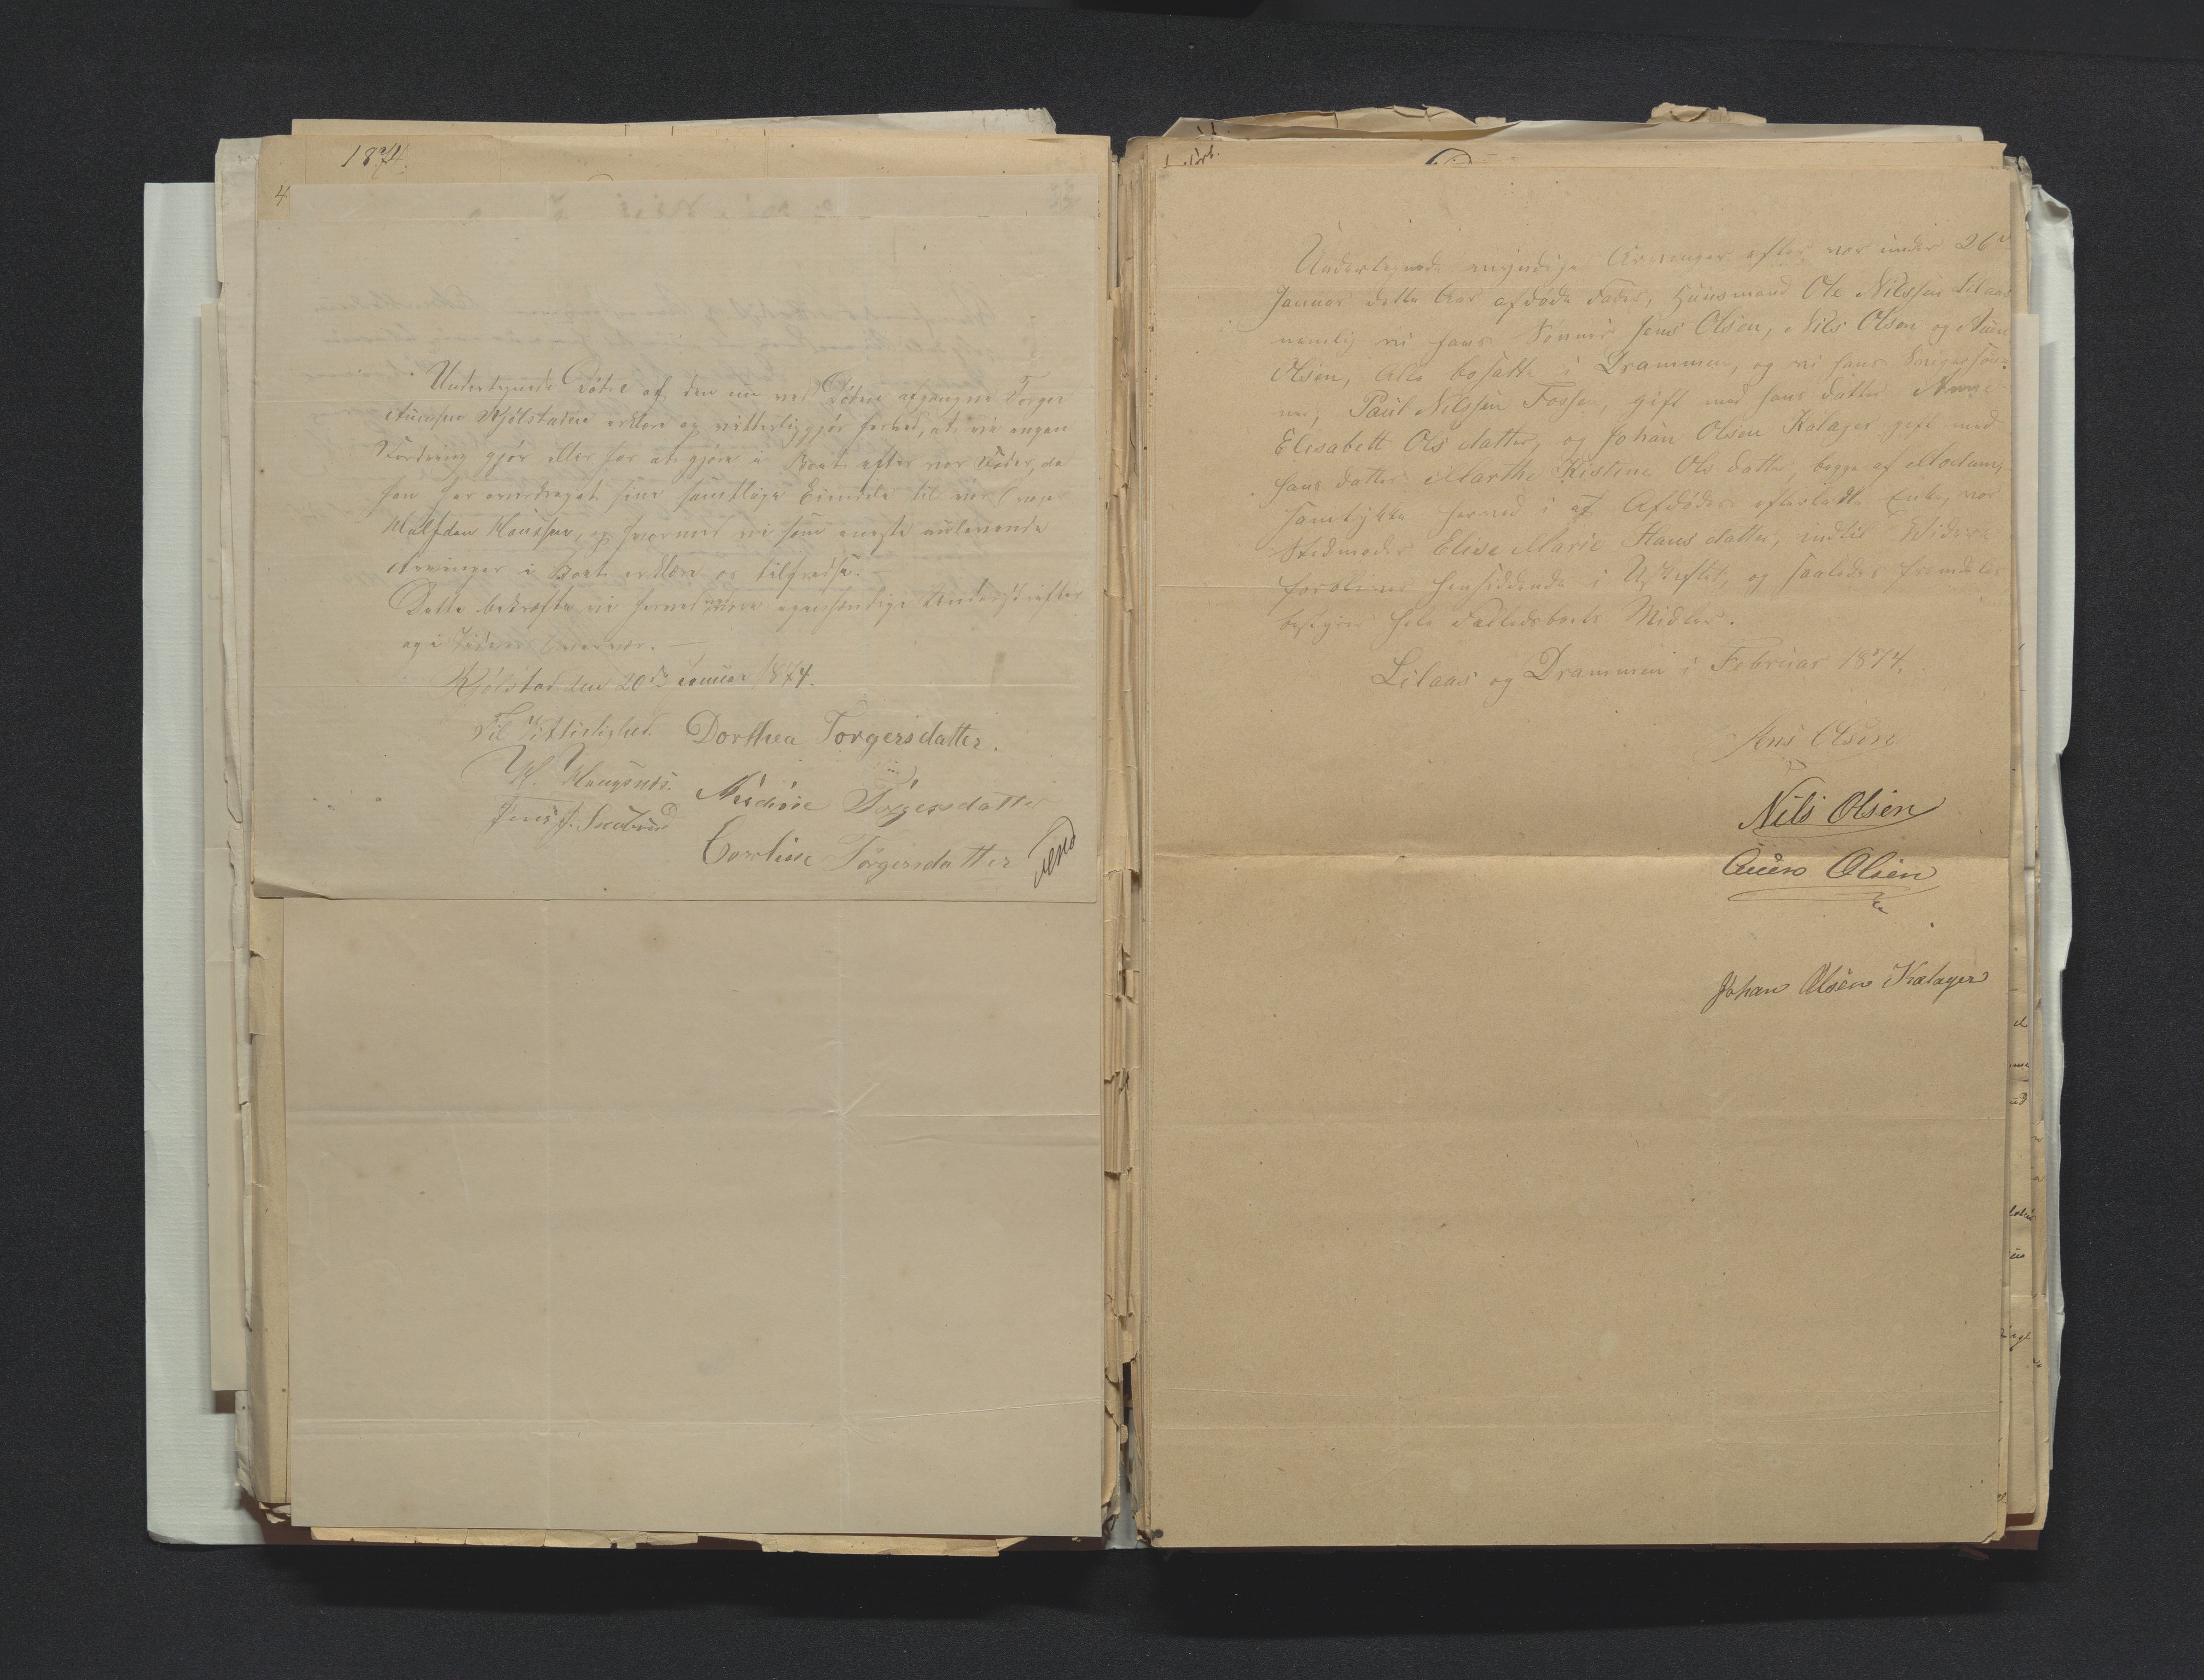 1874.
4
Undertegnede Døtre af den nu ved Døden afgangne Torger
Kjølstadeie erklære og vitterliggjør herved, at vi ingen
Fordring gjør eller har at gjøre i Boet efter vor Fader, da
han har overdraget sine samtlige Eiendele til vor
Halfdan Hansen, og hvormed vi som eneste
Arvinger i Boet erklære os tilfredse. —
Dette bekræfte vi herved med vore egenhændige Underskrifter
og i Vidners Overvær. —
Kjølstad den 20de Januar 1874.
Til Vitterlighed. Dorthea Torgersdatter.
H. Torgersdatter
Jens J. Torgersdatter
vend
Undertegnede myndige Arvinger efter vor under 26de
Januar dette Aar afdøde Fader, Huusmand Ole Nilssen Lilaas
nemlig vi hans Sønner Jens Olsen, Nils Olsen og Auen
Olsen, alle bosatte i Drammen, og vi hans Svigersøn-
ner, Paul Nilssen Fosse, gift med hans Datter
Elisabett Ols datter, og Johan Olsen Kalager gift med
hans Datter Marthe Kistine Ols datter, begge af Modum,
samtykke herved i at Afdødes efterladte Enke, vor
Stedmoder Elise Marie Hans datter, indtil Videre
forbliver hensiddende i Uskiftet, og saaledes fremdeles
bestyrer hele Fælledsboets Midler.
Lilaas og Drammen i Februar 1874.
Jens Olsen
Nils Olsen
Auen Olsen
Johan Olsen Kalager